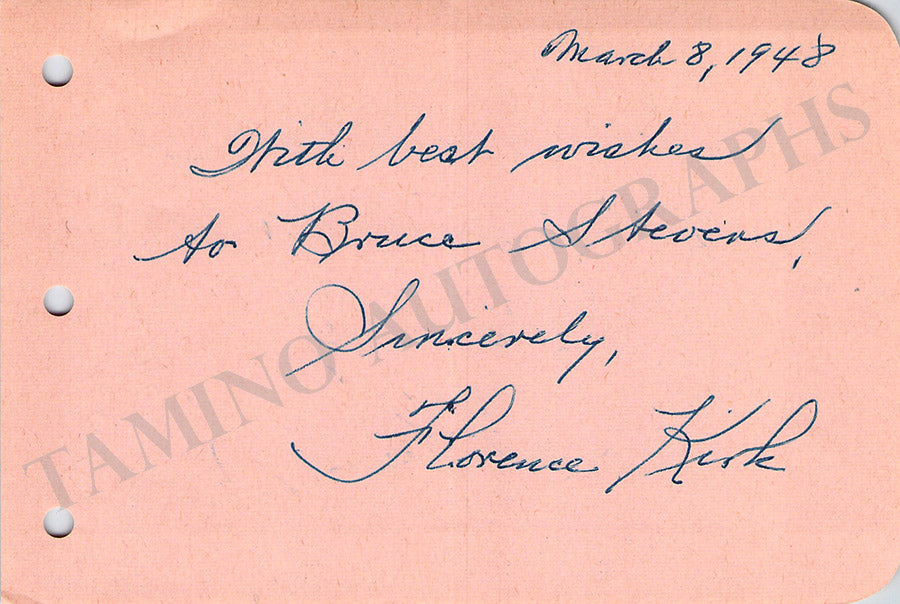 March 8, 1948
With best wishes
to Bruce Stevens,
Sincerely,
Florence Kirk
TAMINO AUTOGRAPHS